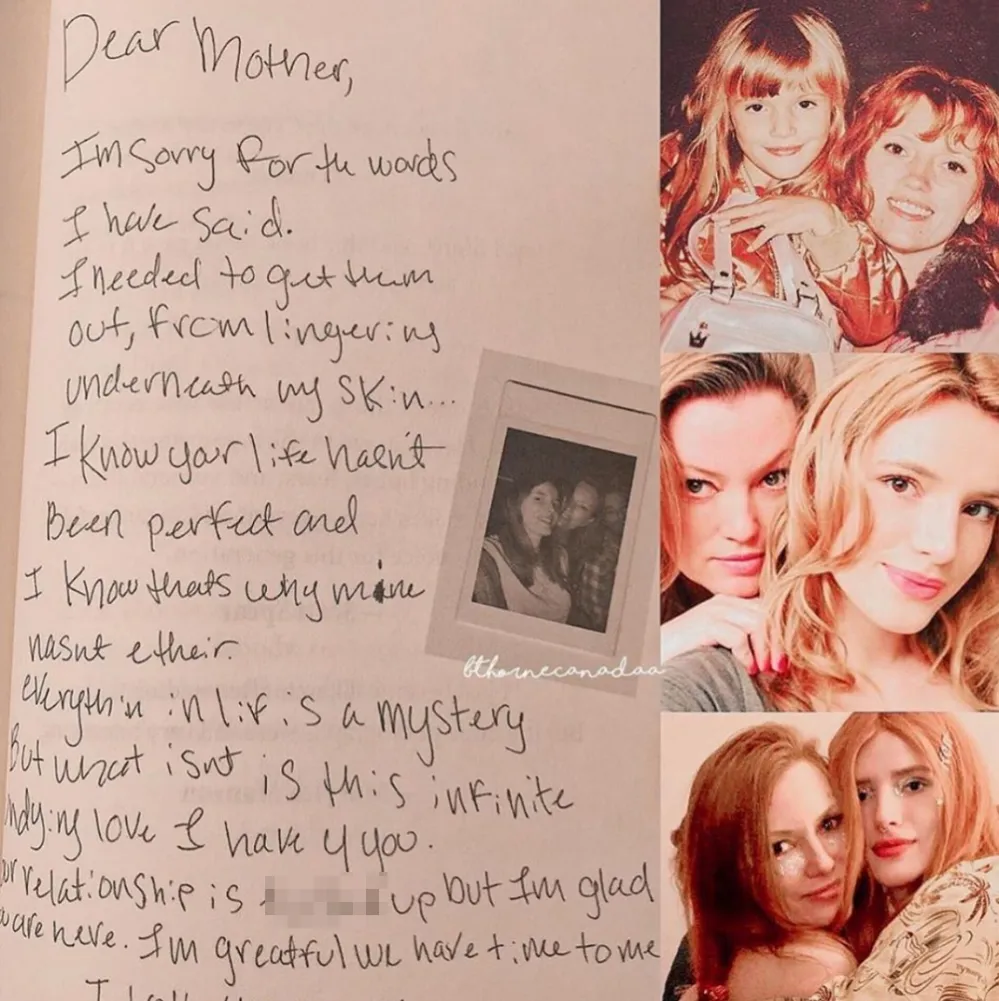 Dear Mother,
Im sorry For the words
I have said.
I needed to get them
out, from lingering
underneath my skin...
I know your life hasn't
Been perfect and
I know thats why mine
hasnt etheir.
everythin in life is a mystery
But what isnt is this infinite
undying love I have 4 you.
our relationship is up but Im glad
you are here. Im greatful we have time to me
bthornecanadaa